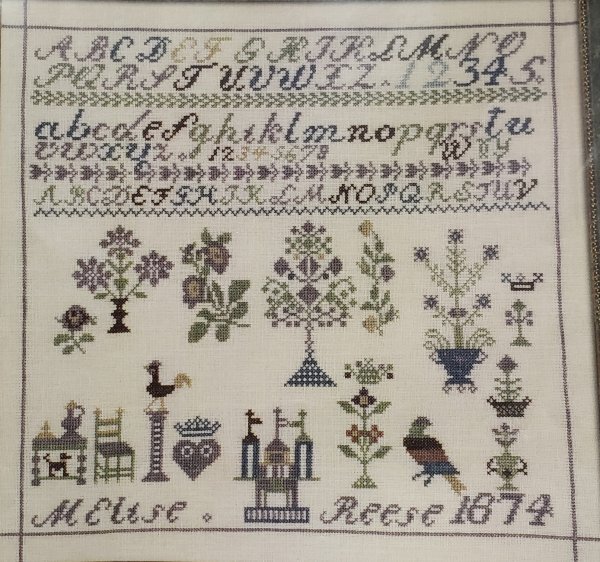 ABCDEF GHIKLMNO
PQRSTUVWXZ.12345.
abcdefghiklmnopqrstu
vwxyz.12345678 W
ABCDEFGHIKLMNOPQRSTUV
M Elise . Reese 1874